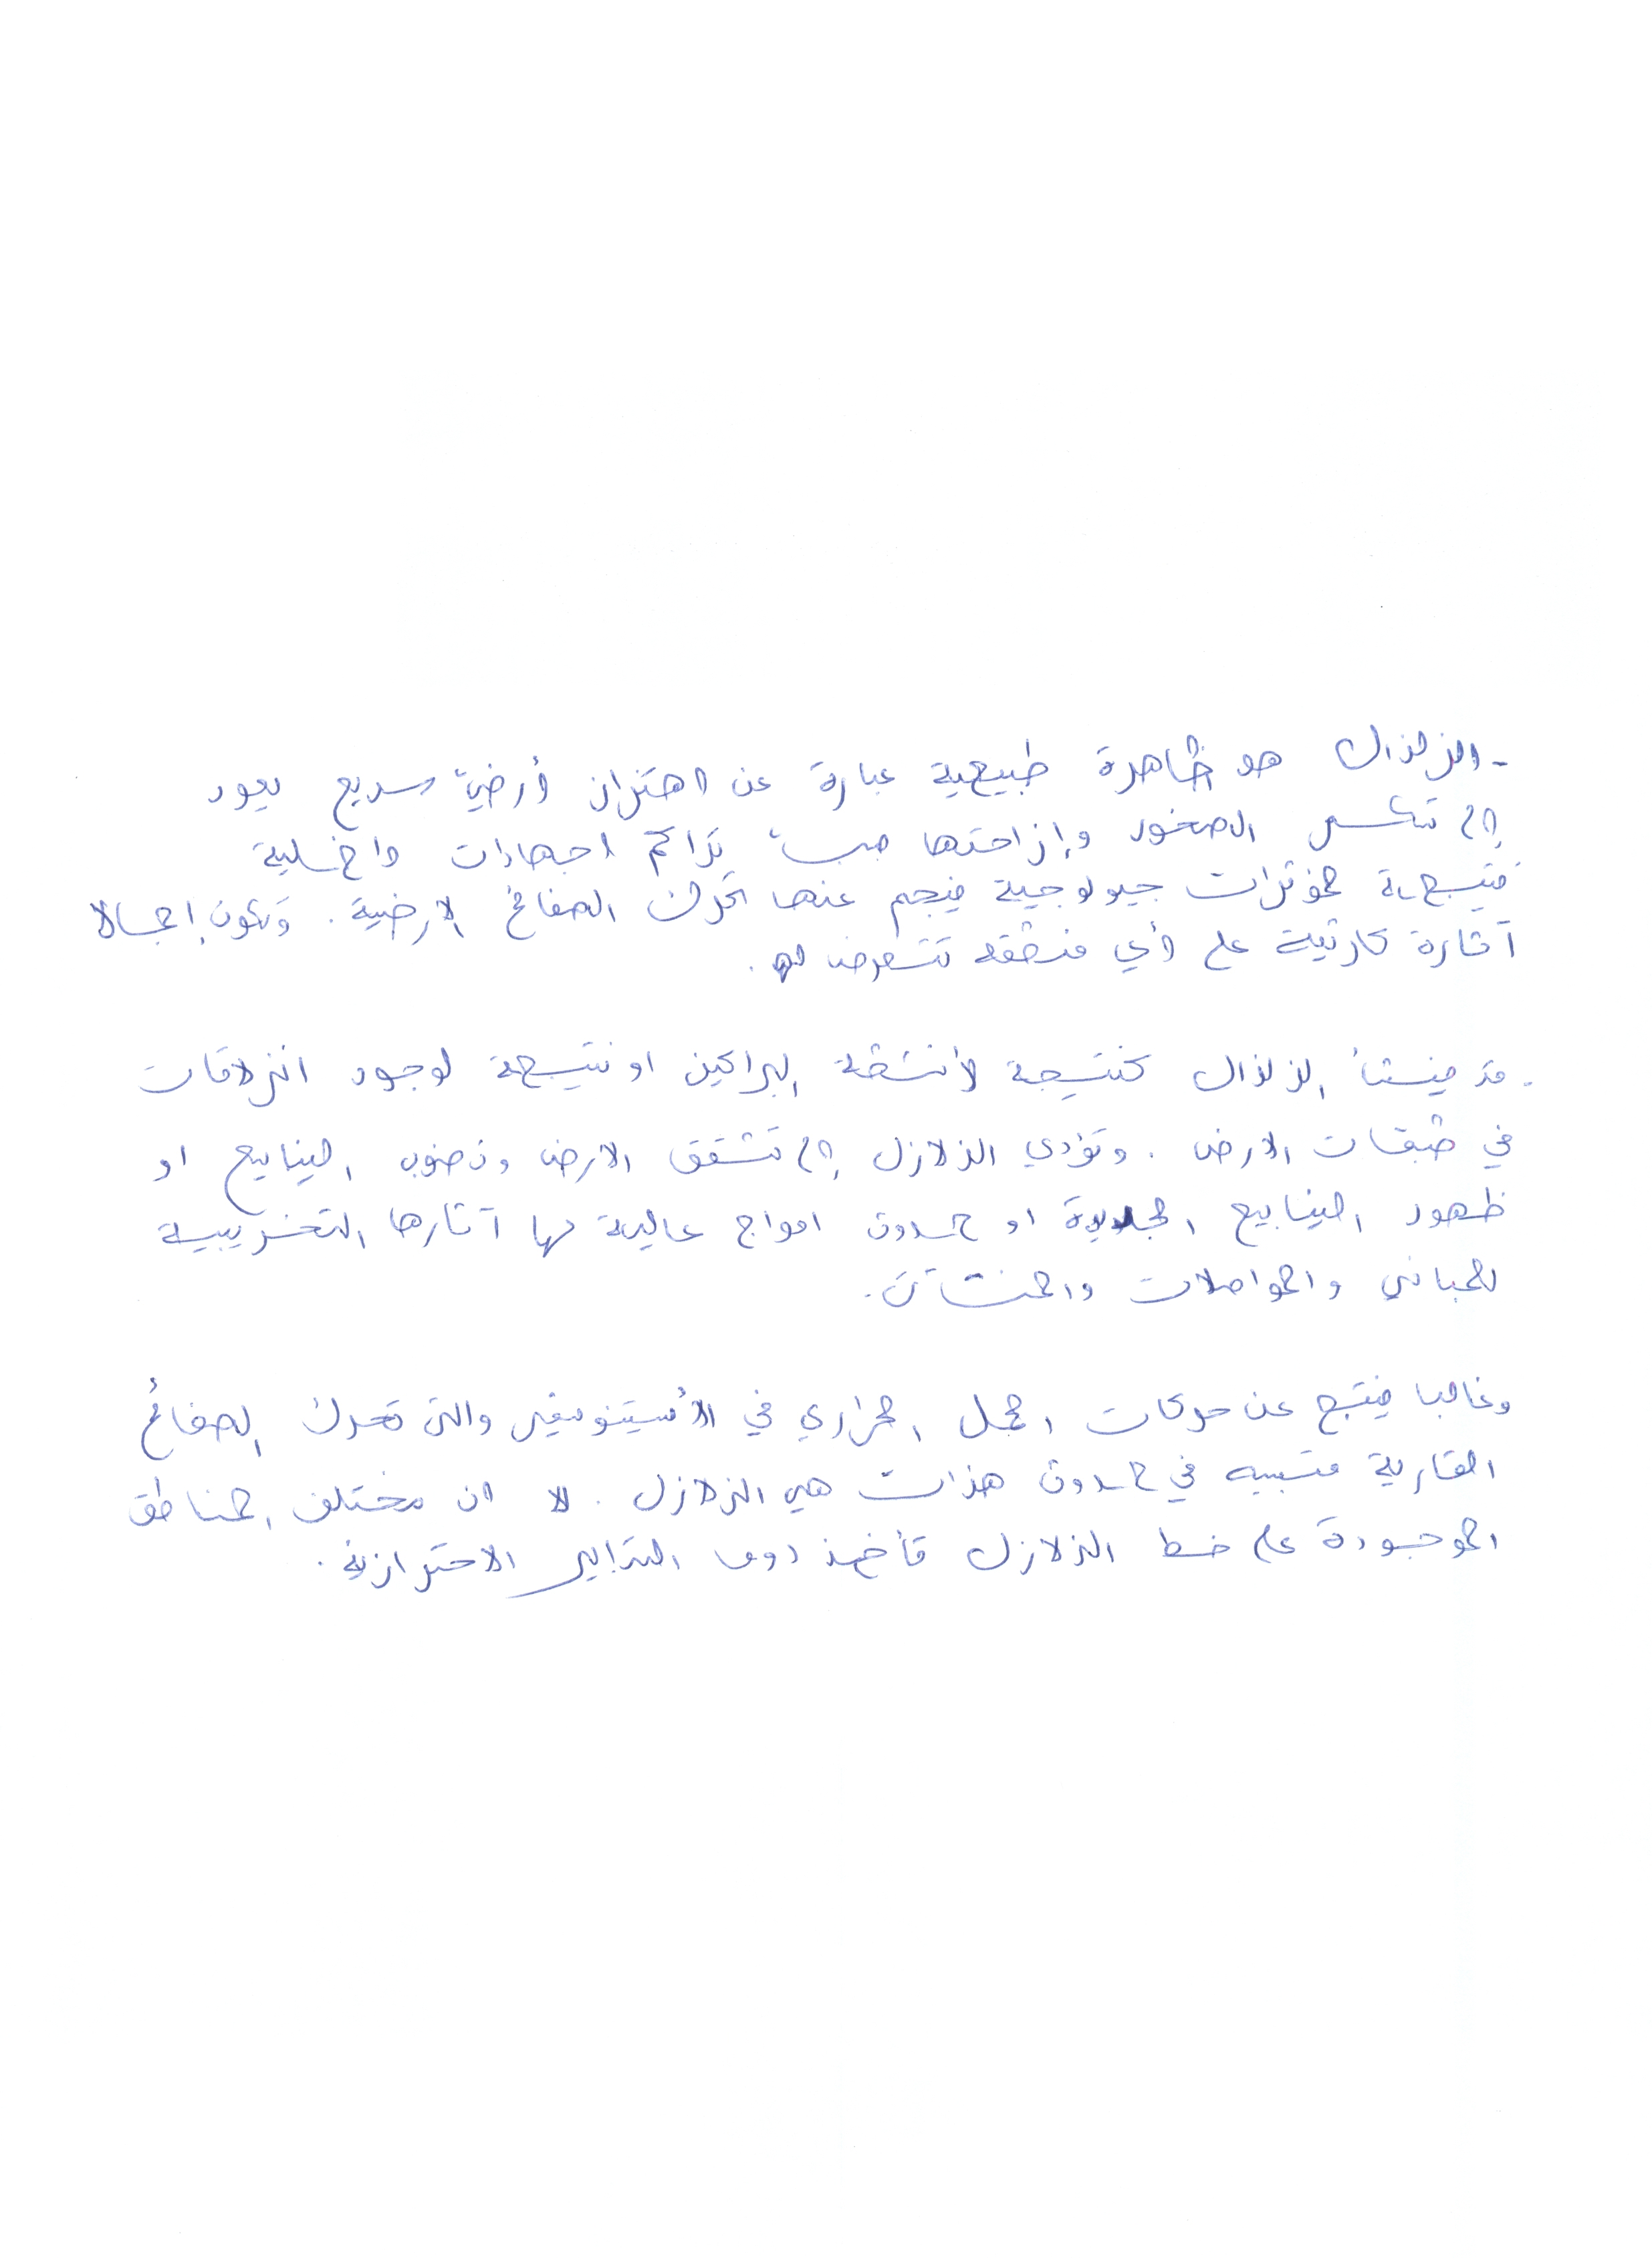 - الزلزال هو ظاهرة طبيعية عبارة عن اهتزاز أرضيّ سريع يعود
إلى تكسر الصخور وإزاحتها بسبب تراكم اجهادات داخلية
نتيجة لمؤثرات جيولوجية ينجم عنها تحرك الصفائح الارضية. وتكون إجمالا
آثارة كارثية على أي منطقه تتعرض له.
. قد ينشأ الزلزال كنتيجة لأنشطة البراكين او نتيجة لوجود انزلاقات
في طبقات الارض. وتؤدي الزلازل إلى تشقق الارض ونضوب الينابيع او
ظهور الينابيع الجديدة او حدوث امواج عالية لها آثارها التخريبية
للمباني والمواصلات والمنشآت.
وغالبا ينتج عن حركات الحمل الحراري في الأستينوسفير والتي تحرك الصفائح
القارية متسببه في حدوث هذات هي الزلازل. لا ان مختلف المناطق
الموجودة على خط الزلازل تأخذ دوما التدابير الاحترازية.